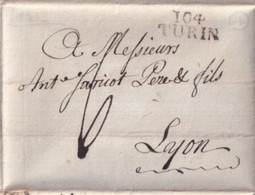 104
TURIN
A Messieurs
Ant.e Jaricot Pere & fils
Lyon